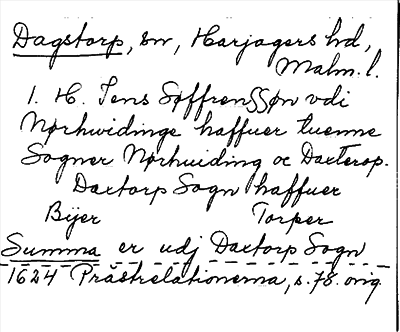 Dagstorp, sn, Harjagers hd,
Malm. l.
1. H. Jens SøffrenSSøn vdi
Nørhwidinge haffuer tuenne
Sogner Nørhuiding oc Daxterop.
Daxtorp Sogn haffuer
Bÿer Torper
Summa er udj Daxtorp Sogn
1624 Prästrelationerna, s. 78. orig.